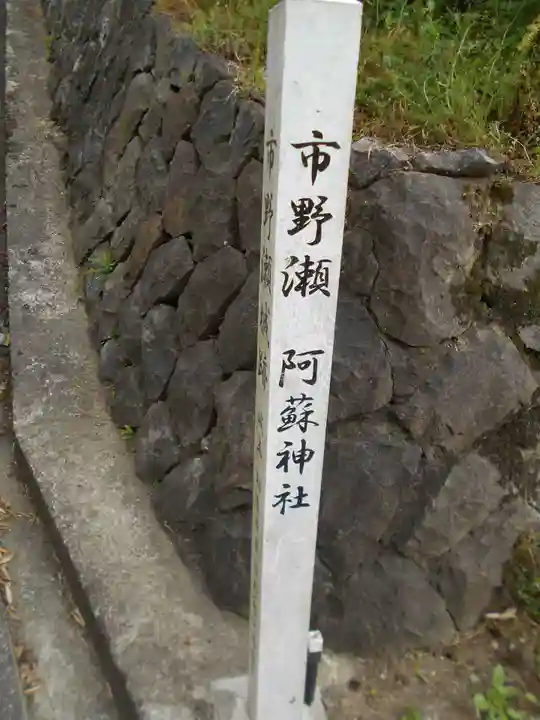 市野瀬 阿蘇神社
市野瀬城跡